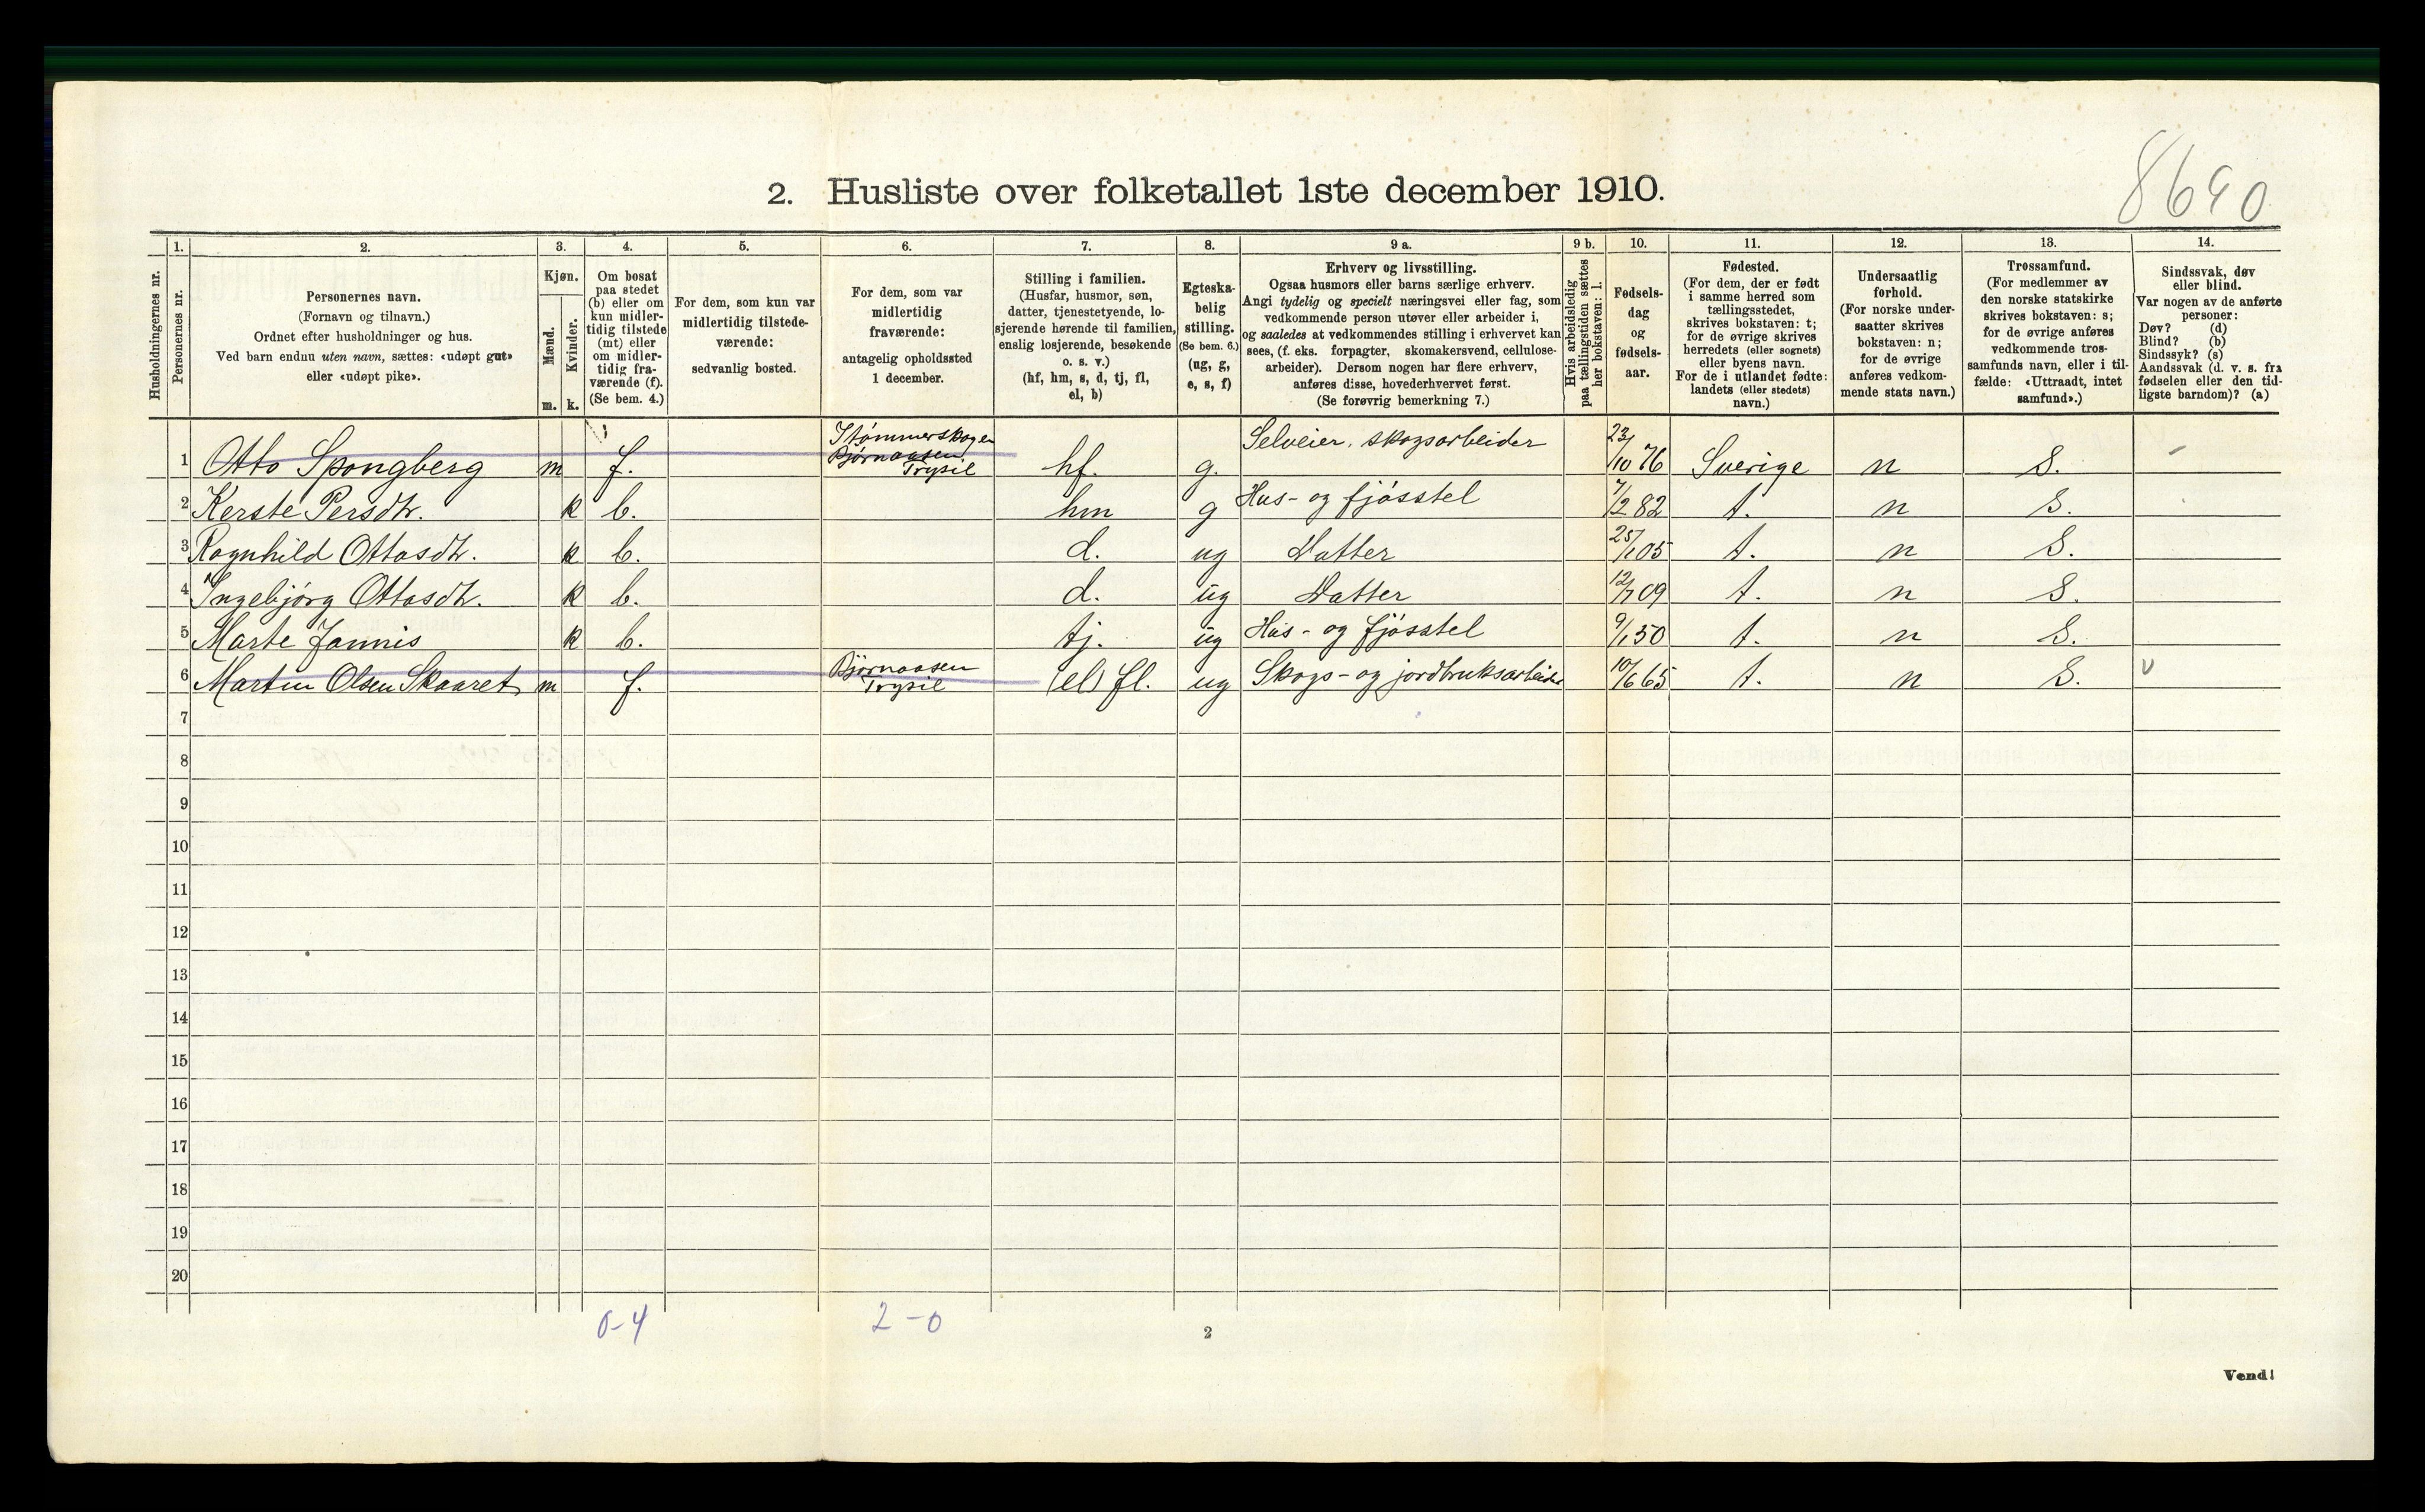 8690
2. Husliste over folketallet 1ste december 1910.
Husholdningernes nr.
1.
Personernes nr.
2.
Personernes navn.
(Fornavn og tilnavn.)
Ordnet efter husholdninger og hus.
Ved barn endnu uten navn, sættes: «udøpt gut»
eller «udøpt pike».
3.
Kjøn.
Mænd.
Kvinder.
m. k.
4.
Om bosat
paa stedet
(b) eller om
kun midler-
tidig tilstede
(mt) eller
om midler-
tidig fra-
værende (f).
(Se bem. 4.)
5.
For dem, som kun var
midlertidig tilstede-
værende:
sedvanlig bosted.
6.
For dem, som var
midlertidig
fraværende:
antagelig opholdssted
1 december.
7.
Stilling i familien.
(Husfar, husmor, søn,
datter, tjenestetyende, lo-
sjerende hørende til familien,
enslig losjerende, besøkende
o. s. v.)
(hf, hm, s, d, tj, fl,
el, b)
8.
Egteska-
belig
stilling.
(Se bem. 6.)
(ug, g,
e, s, f)
9 a.
Erhverv og livsstilling.
Ogsaa husmors eller barns særlige erhverv.
Angi tydelig og specielt næringsvei eller fag, som
vedkommende person utøver eller arbeider i,
og saaledes at vedkommendes stilling i erhvervet kan
sees, (f. eks. forpagter, skomakersvend, cellulose-
arbeider). Dersom nogen har flere erhverv,
anføres disse, hovederhvervet først.
(Se forøvrig bemerkning 7.)
9 b.
Hvis arbeidsledig
paa tællingstiden sættes
her bokstaven: l.
10.
Fødsels-
dag
og
fødsels-
aar.
11.
Fødested.
(For dem, der er født
i samme herred som
tællingsstedet,
skrives bokstaven: t;
for de øvrige skrives
herredets (eller sognets)
eller byens navn.
For de i utlandet fødte:
landets (eller stedets)
navn.)
12.
Undersaatlig
forhold.
(For norske under-
saatter skrives
bokstaven: n;
for de øvrige
anføres vedkom-
mende stats navn.)
13.
Trossamfund.
(For medlemmer av
den norske statskirke
skrives bokstaven: s;
for de øvrige anføres
vedkommende tros-
samfunds navn, eller i til-
fælde: «Uttraadt, intet
samfund».)
14.
Sindssvak, døv
eller blind.
Var nogen av de anførte
personer:
Døv? (d)
Blind? (b)
Sindssyk? (s)
Aandssvak (d. v. s. fra
fødselen eller den tid-
ligste barndom)? (a)
1 Otto Spongberg m f. I tømmerskogen Bjørnaasen Trysil hf. g. Selveier, skogsarbeider 23/10 76 Sverige n S.
2 Kerste Persdtr. k b. hm g Hus- og fjøsstel 7/2 82 t. n S.
3 Ragnhild Ottosdtr. k b. d. ug Datter 25/1 05 t. n S.
4 Ingebjørg Ottosdtr. k b. d. ug Datter 12/7 09 t. n S.
5 Marte Jonnis k b. tj. ug Hus- og fjøsstel 9/1 50 t. n S.
6 Martin Olsen Skaaret m f. Bjørnaasen Trysil (el) fl. ug Skogs- og jordbruksarbeider 10/6 65 t. n S.
7
8
9
10
11
12
13
14
15
16
17
18
19
20
0-4 2-0
2
Vend!